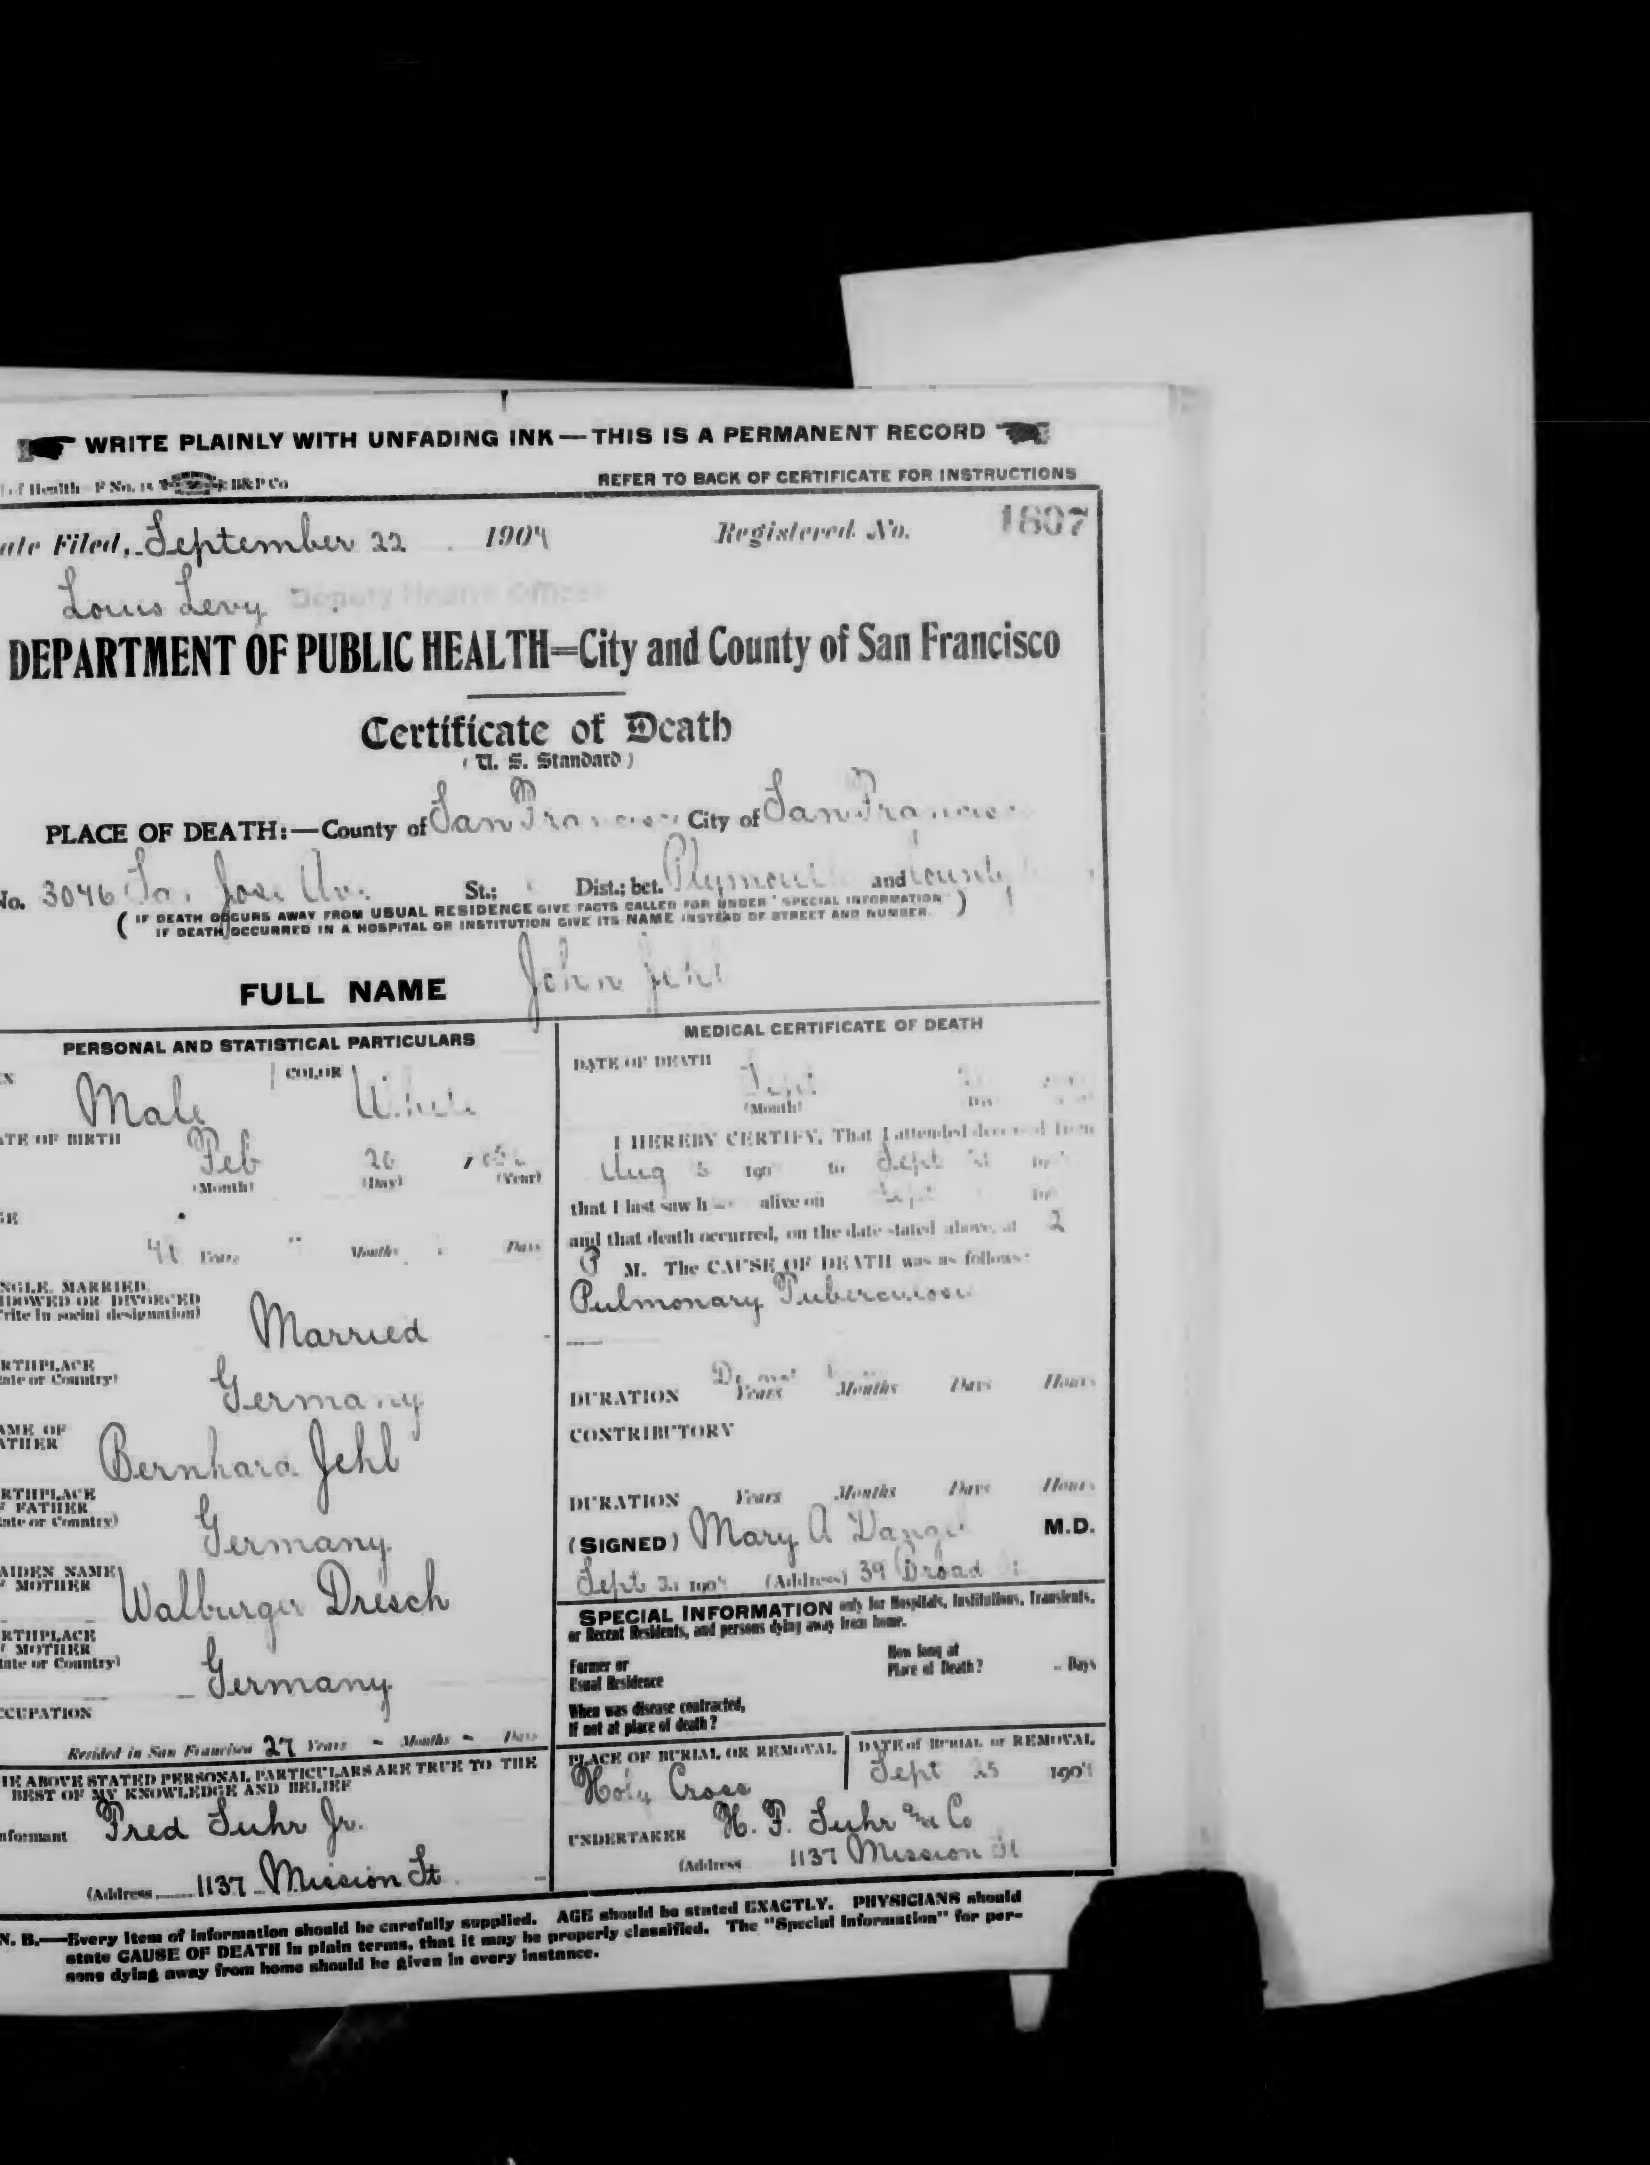 WRITE PLAINLY WITH UNFADING INK — THIS IS A PERMANENT RECORD
of Health F No. 15 B&P Co REFER TO BACK OF CERTIFICATE FOR INSTRUCTIONS
ate Filed, September 22 1904 Registered No. 1607
Louis Levy Deputy Health Officer
DEPARTMENT OF PUBLIC HEALTH=City and County of San Francisco
Certificate of Death
(U. S. Standard)
PLACE OF DEATH:—County of San Francisco City of San Francisco
No. 3046 San Jose Av. St.; Dist.; bet. Plymouth and County
(IF DEATH OCCURS AWAY FROM USUAL RESIDENCE GIVE FACTS CALLED FOR UNDER "SPECIAL INFORMATION"
IF DEATH OCCURRED IN A HOSPITAL OR INSTITUTION GIVE ITS NAME INSTEAD OF STREET AND NUMBER.)
FULL NAME John Jehl
PERSONAL AND STATISTICAL PARTICULARS
COLOR
Male White
ATE OF BIRTH
Feb 26
(Month) (Day) (Year)
GE
Years Months Days
NGLE, MARRIED,
IDOWED OR DIVORCED
rite in social designation)
Married
RTHPLACE
tate or Country)
Germany
AME OF
ATHER
Bernhard Jehl
RTHPLACE
F FATHER
tate or Country)
Germany
AIDEN NAME
F MOTHER
Walburger Dresch
RTHPLACE
F MOTHER
tate or Country)
Germany
CCUPATION
Resided in San Francisco 27 Years - Months - Days
HE ABOVE STATED PERSONAL PARTICULARS ARE TRUE TO THE
BEST OF MY KNOWLEDGE AND BELIEF
nformant Fred Suhr Jr.
(Address 1137 Mission St
MEDICAL CERTIFICATE OF DEATH
DATE OF DEATH
Sept
(Month) Day
I HEREBY CERTIFY, That I attended deceased from
Aug 190 to Sept 190
that I last saw h alive on Sept 190
and that death occurred, on the date stated above, at 2
P M. The CAUSE OF DEATH was as follows:
Pulmonary Tuberculosis
DURATION Years Months Days Hours
CONTRIBUTORY
DURATION Years Months Days Hours
(SIGNED) Mary A M.D.
Sept 1904 (Address) 39 Broad St
SPECIAL INFORMATION only for Hospitals, Institutions, Transients,
or Recent Residents, and persons dying away from home.
Former or
Usual Residence
How long at
Place of Death? Days
When was disease contracted,
If not at place of death?
PLACE OF BURIAL OR REMOVAL
Holy Cross
DATE of BURIAL or REMOVAL
Sept 25 1904
UNDERTAKER H. F. Suhr and Co
(Address 1137 Mission St
N. B.—Every item of information should be carefully supplied. AGE should be stated EXACTLY. PHYSICIANS should
state CAUSE OF DEATH in plain terms, that it may be properly classified. The "Special Information" for per-
sons dying away from home should be given in every instance.